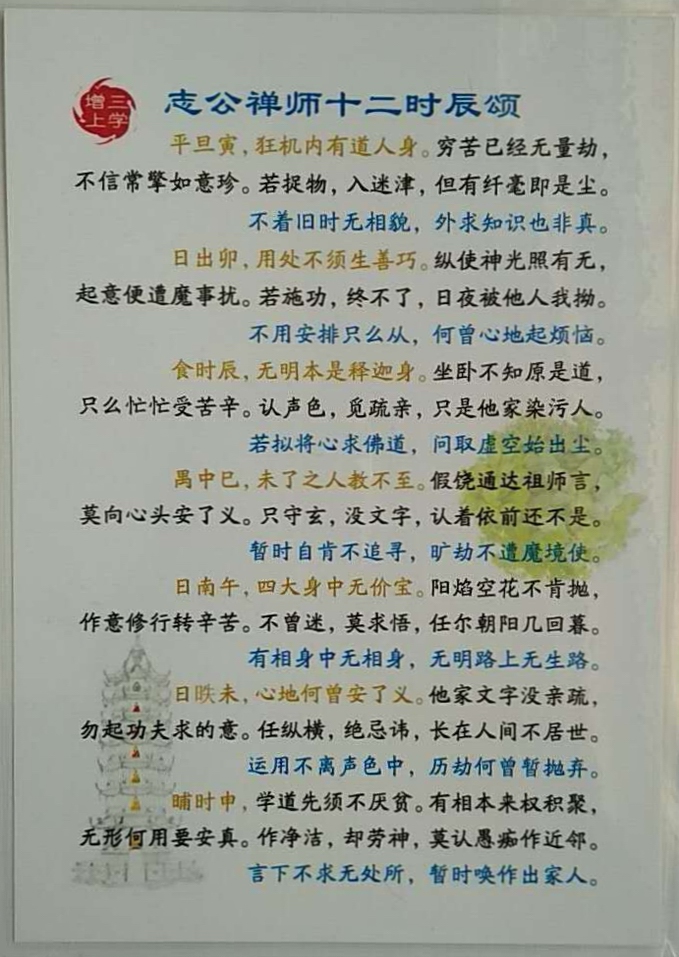 增三
上学
志公禅师十二时辰颂
平旦寅，狂机内有道人身。穷苦已经无量劫，
不信常擎如意珍。若捉物，入迷津，但有纤毫即是尘。
不着旧时无相貌，外求知识也非真。
日出卯，用处不须生善巧。纵使神光照有无，
起意便遭魔事扰。若施功，终不了，日夜被他人我拗。
不用安排只么从，何曾心地起烦恼。
食时辰，无明本是释迦身。坐卧不知原是道，
只么忙忙受苦辛。认声色，觅疏亲，只是他家染污人。
若拟将心求佛道，问取虚空始出尘。
禺中巳，未了之人教不至。假饶通达祖师言，
莫向心头安了义。只守玄，没文字，认着依前还不是。
暂时自肯不追寻，旷劫不遭魔境使。
日南午，四大身中无价宝。阳焰空花不肯抛，
作意修行转辛苦。不曾迷，莫求悟，任尔朝阳几回暮。
有相身中无相身，无明路上无生路。
日昳未，心地何曾安了义。他家文字没亲疏，
勿起功夫求的意。任纵横，绝忌讳，长在人间不居世。
运用不离声色中，历劫何曾暂抛弃。
晡时申，学道先须不厌贫。有相本来权积聚，
无形何用要安真。作净洁，却劳神，莫认愚痴作近邻。
言下不求无处所，暂时唤作出家人。